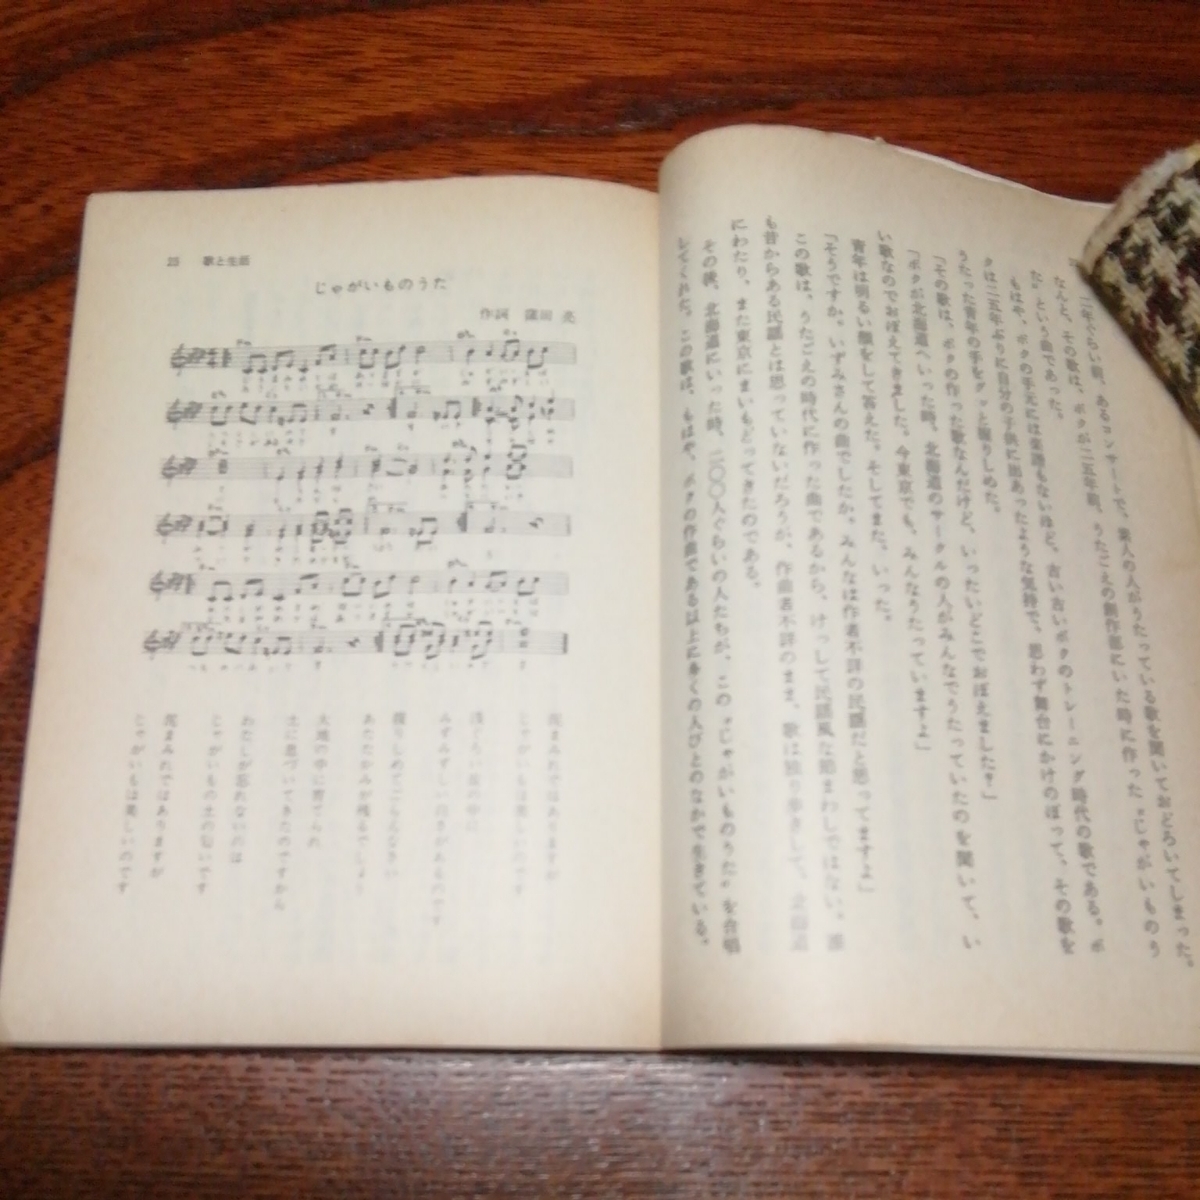 二年ぐらい前、あるコンサートで、黒人の人がうたっている歌を聞いておどろいてしまった。
なんと、その歌は、ボクが二五年前、うたごえの創作部にいた時に作った〝じゃがいものう
た〟という曲であった。
もはや、ボクの手元には楽譜もないほど、古い古いボクのトレーニング時代の歌である。ボ
クは二五年ぶりに自分の子供に出あったような気持で、思わず舞台にかけのぼって、その歌を
うたった青年の手をグッと握りしめた。
「その歌は、ボクの作った歌なんだけど、いったいどこでおぼえました?」
「ボクが北海道へいった時、北海道のサークルの人がみんなでうたっていたのを聞いて、い
い歌なのでおぼえてきました。今東京でも、みんなうたっていますよ」
青年は明るい顔をして答えた。そしてまた、いった。
「そうですか。いずみさんの曲でしたか。みんなは作者不詳の民謡だと思ってますよ」
この歌は、うたごえの時代に作った曲であるから、けっして民謡風な節まわしではない。誰
も昔からある民謡とは思っていないだろうが、作曲者不詳のまま、歌は独り歩きして、北海道
にわたり、また東京にまいもどってきたのである。
その後、北海道にいった時、二〇〇人ぐらいの人たちが、この〝じゃがいものうた〟を合唱
してくれた。この歌は、もはや、ボクの作曲である以上に多くの人びととのなかで生きている。
23 歌と生活
じゃがいものうた
作詞 窪田 亨
泥まみれではありますが
じゃがいもは美しいのです
みずみずしい白さがあるものです
握りしめてごらんなさい
あたたかみが残るでしょう
大地の中に育てられ
土に息づいてきたのですから
わたしが忘れないのは
じゃがいもの土の匂いです
泥まみれではありますが
じゃがいもは美しいのです